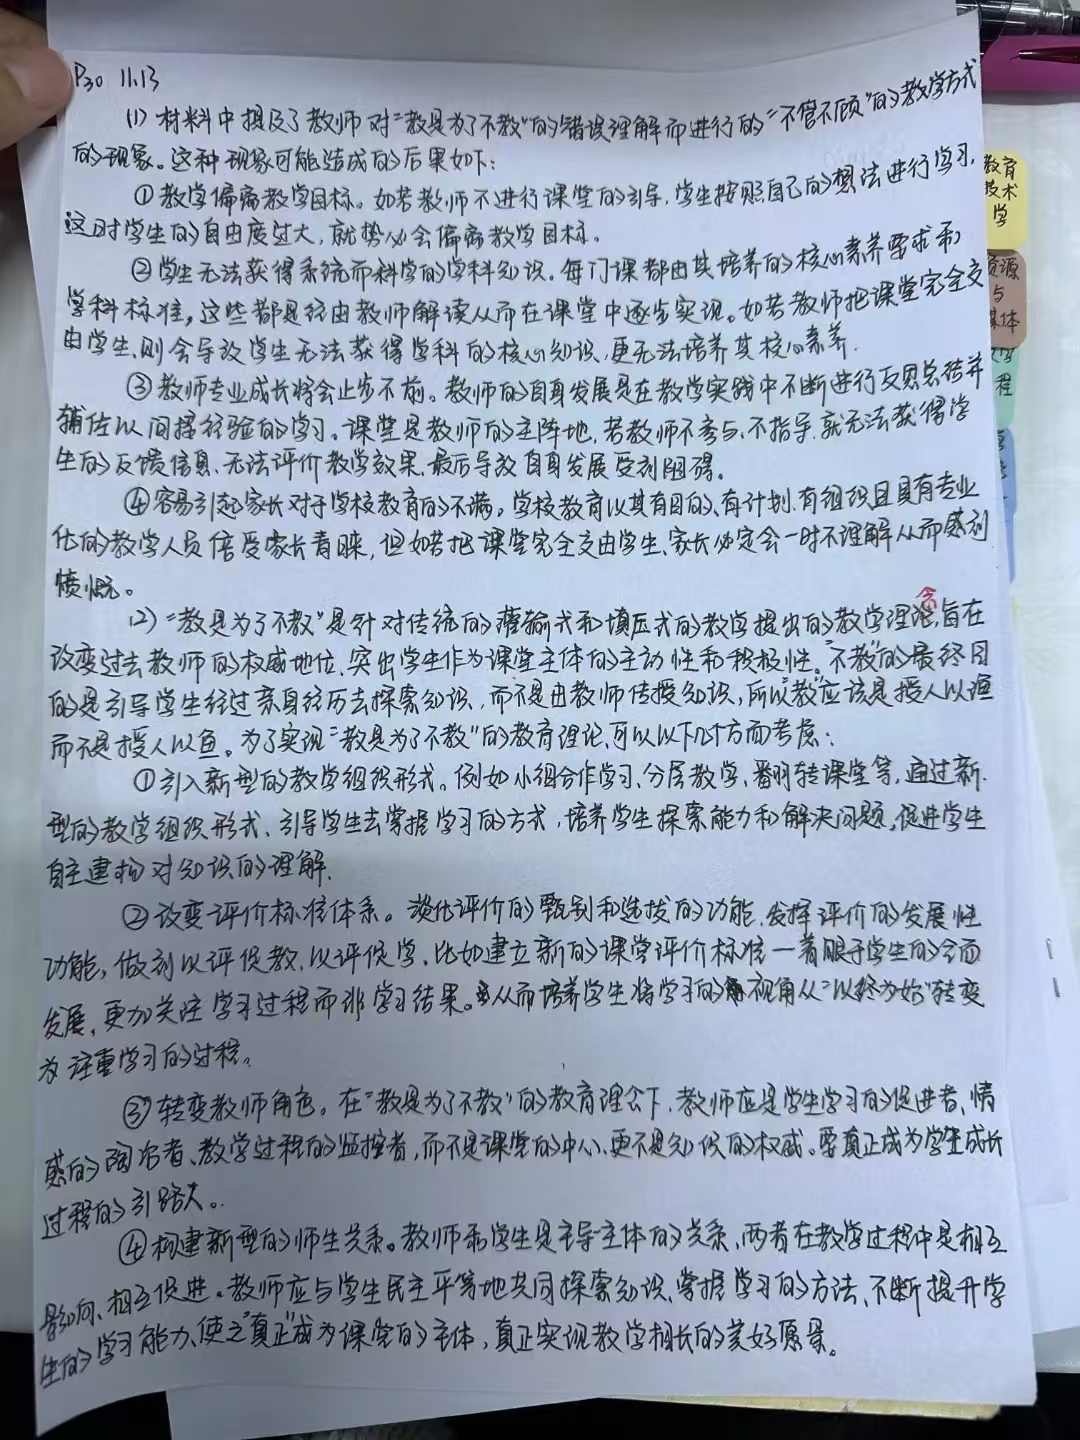 P30 11.13
(1) 材料中提及了教师对"教是为了不教"的错误理解而进行的"不管不顾"的教学方式
的现象。这种现象可能造成的后果如下：
①教学偏离教学目标。如若教师不进行课堂的引导，学生按照自己的想法进行学习，
这时学生的自由度过大，就势必会偏离教学目标。
②学生无法获得系统而科学的学科知识。每门课都由其培养的核心素养要求和
学科标准，这些都是经由教师解读从而在课堂中逐步实现。如若教师把课堂完全交
由学生，则会导致学生无法获得学科的核心知识，更无法培养其核心素养。
③教师专业成长将会止步不前。教师的自身发展是在教学实践中不断进行反思总结并
辅佐以间接经验的学习。课堂是教师的主阵地，若教师不参与、不指导，就无法获得学
生的反馈信息、无法评价教学效果，最后导致自身发展受到阻碍。
④容易引起家长对于学校教育的不满。学校教育以其有目的、有计划、有组织且具有专业
化的教学人员倍受家长青睐，但如若把课堂完全交由学生，家长必定会一时不理解从而感到
愤慨。
(2) "教是为了不教"是针对传统的灌输式和填压式的教学提出的教学理念，旨在
改变过去教师的权威地位，突出学生作为课堂主体的主动性和积极性。"不教"的最终目
的是引导学生经过亲身经历去探索知识，而不是由教师传授知识，所以"教"应该是授人以渔
而不是授人以鱼。为了实现"教是为了不教"的教育理论，可以以下几个方面考虑：
①引入新型的教学组织形式。例如小组合作学习、分层教学、翻转课堂等，通过新
型的教学组织形式，引导学生去掌握学习的方式，培养学生探索能力和解决问题，促进学生
自主建构对知识的理解。
②改变评价标准体系。淡化评价的甄别和选拔的功能，发挥评价的发展性
功能，做到以评促教，以评促学。比如建立新的课堂评价标准—着眼于学生的全面
发展，更加关注学习过程而非学习结果。从而培养学生将学习的视角从"以终为始"转变
为注重学习的过程。
③转变教师角色。在"教是为了不教"的教育理念下，教师应是学生学习的促进者、情
感的陶冶者、教学过程的监控者，而不是课堂的中心，更不是知识的权威。要真正成为学生成长
过程的引路人。
④构建新型的师生关系。教师和学生是主导主体的关系，两者在教学过程中是相互
影响、相互促进。教师应与学生民主平等地共同探索知识、掌握学习的方法、不断提升学
生的学习能力、使之"真正"成为课堂的主体，真正实现教学相长的美好愿景。
教育
技术
学
资源
与
媒体
程